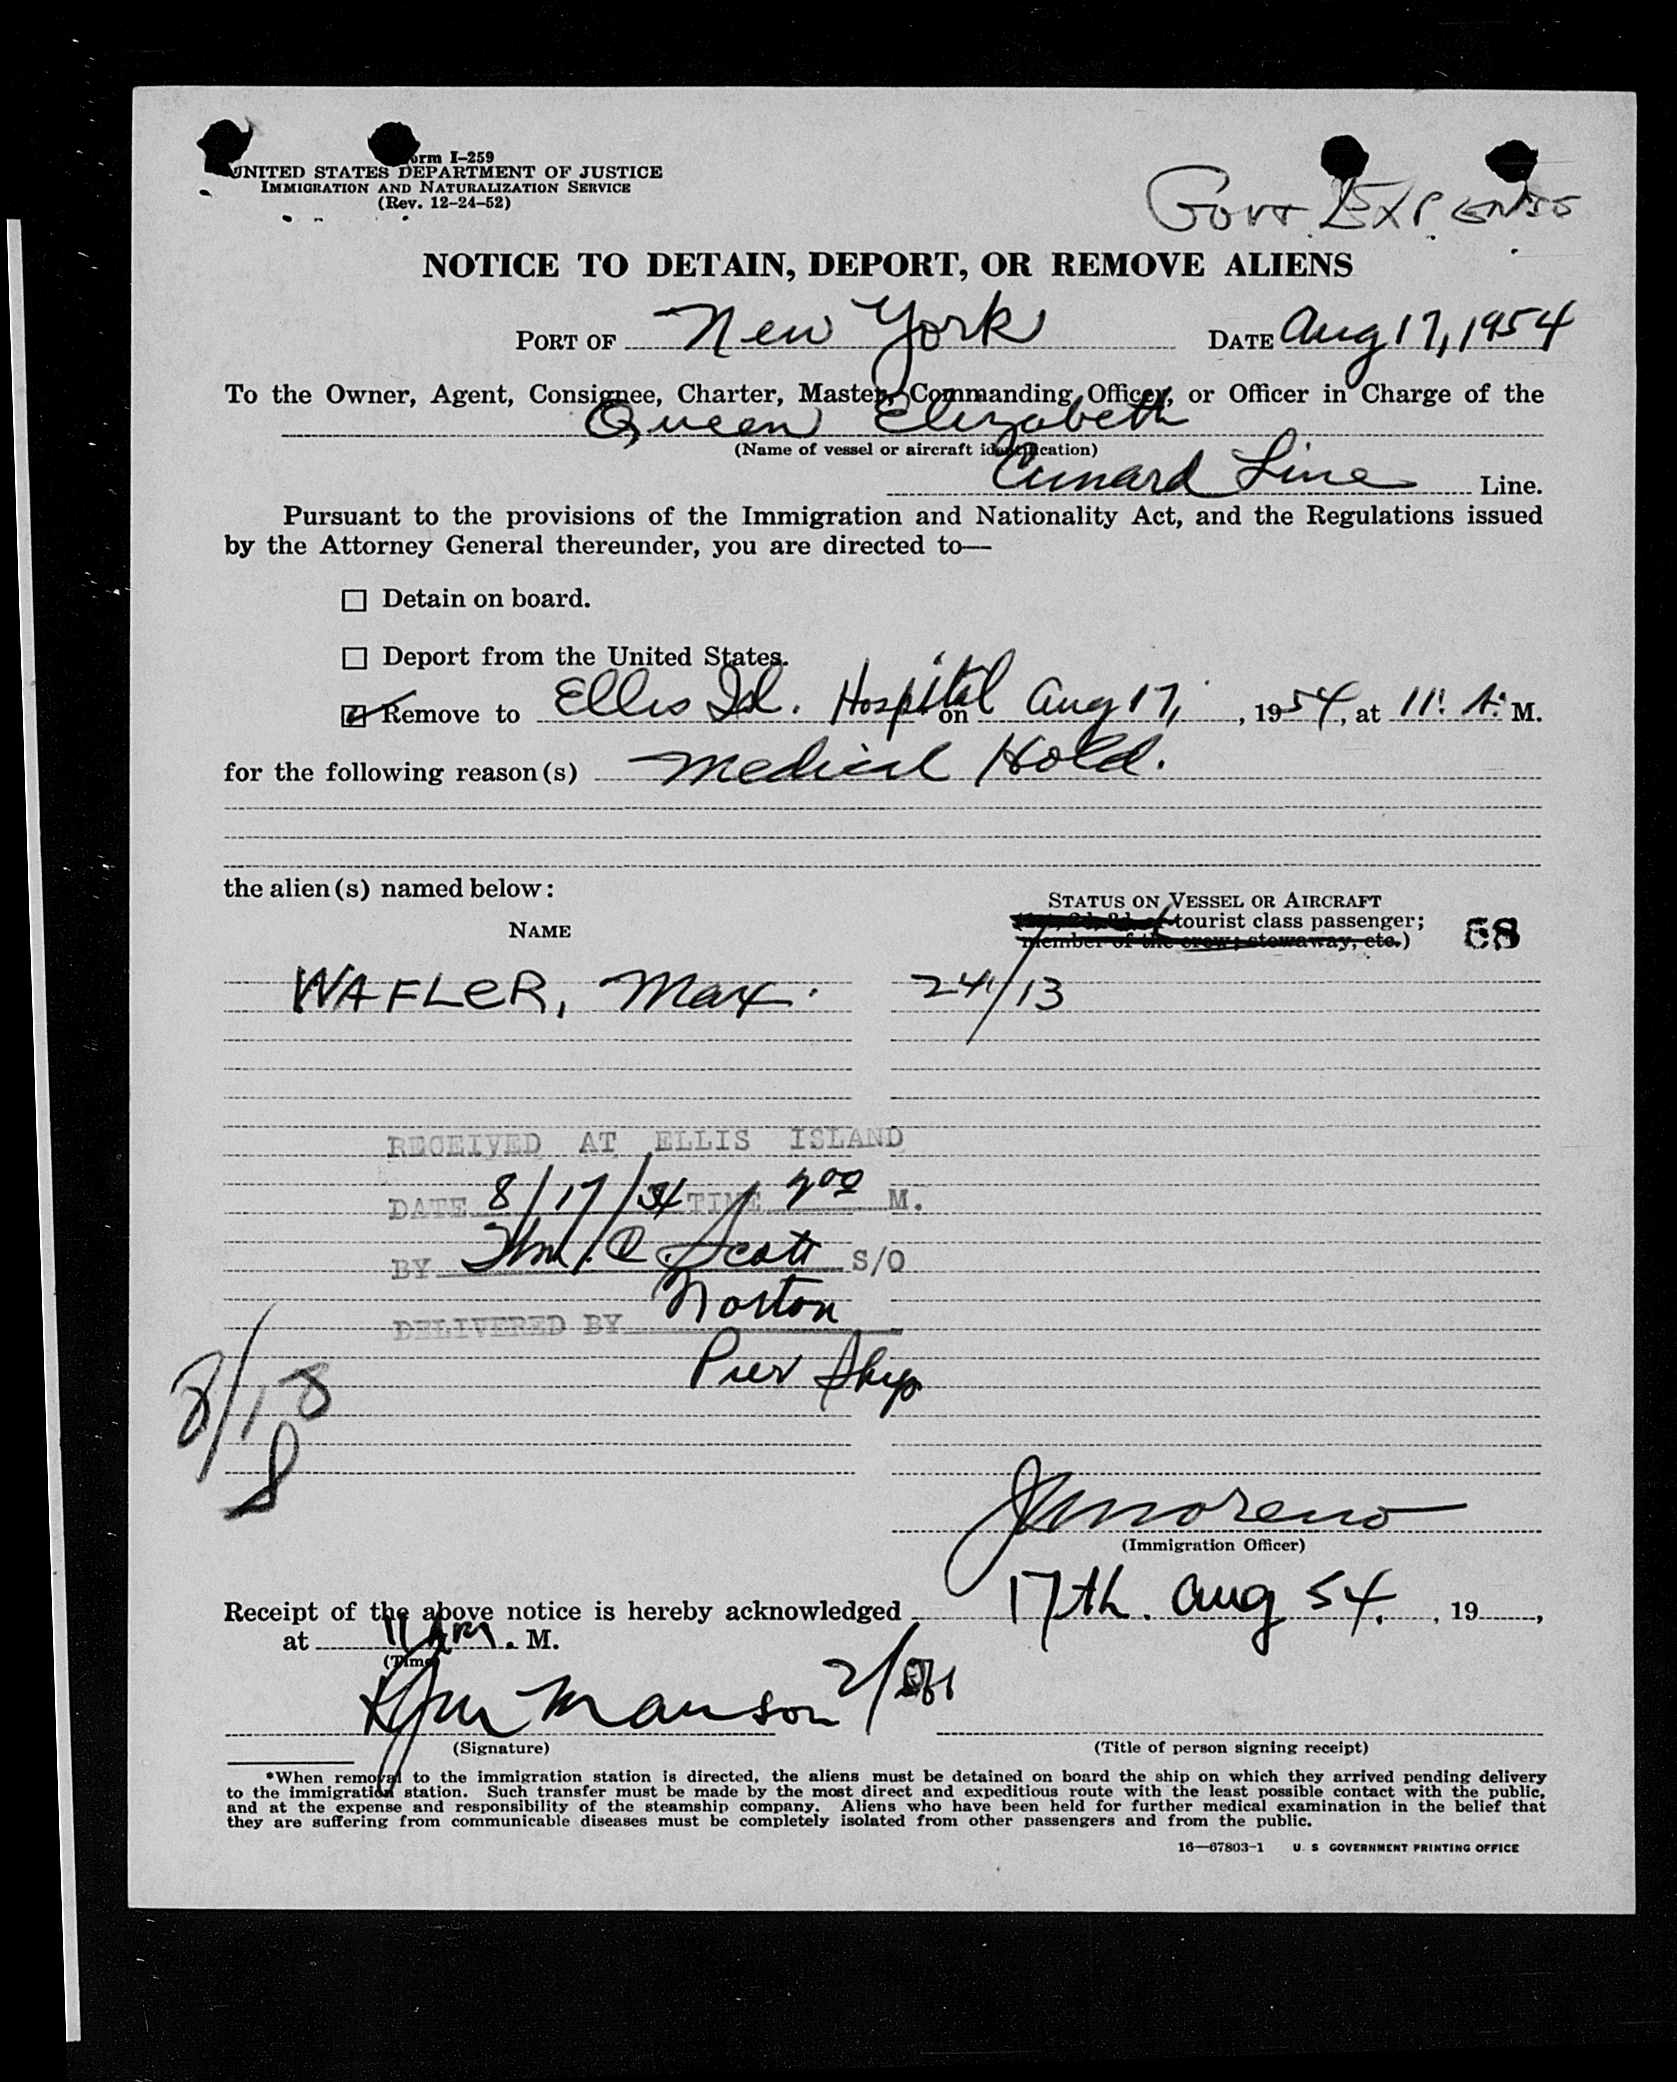 Form I-259
UNITED STATES DEPARTMENT OF JUSTICE
IMMIGRATION AND NATURALIZATION SERVICE
(Rev. 12-24-52)
Govt Expense
NOTICE TO DETAIN, DEPORT, OR REMOVE ALIENS
PORT OF New York DATE Aug 17, 1954
To the Owner, Agent, Consignee, Charter, Master, Commanding Officer, or Officer in Charge of the
Queen Elizabeth
(Name of vessel or aircraft identification)
Cunard Line Line.
Pursuant to the provisions of the Immigration and Nationality Act, and the Regulations issued
by the Attorney General thereunder, you are directed to—
Detain on board.
Deport from the United States.
Remove to Ellis Isl. Hospital on Aug 17, , 1954, at 11: A. M.
for the following reason(s) Medical Hold.
the alien(s) named below:
STATUS ON VESSEL OR AIRCRAFT
tourist class passenger;
member of the crew; stowaway, etc.)
NAME
WAFLER, Max. 24/13
RECEIVED AT ELLIS ISLAND
DATE 8/17/54 TIME 200 M.
BY Wm. C. Scott S/O
Norton
DELIVERED BY
Pier Shop
8/18
J Moreno
(Immigration Officer)
Receipt of the above notice is hereby acknowledged 17th. Aug 54. , 19 ,
at 11 AM. M.
(Time)
Manson
(Signature)
(Title of person signing receipt)
*When removal to the immigration station is directed, the aliens must be detained on board the ship on which they arrived pending delivery
to the immigration station. Such transfer must be made by the most direct and expeditious route with the least possible contact with the public,
and at the expense and responsibility of the steamship company. Aliens who have been held for further medical examination in the belief that
they are suffering from communicable diseases must be completely isolated from other passengers and from the public.
16—67803-1 U. S. GOVERNMENT PRINTING OFFICE